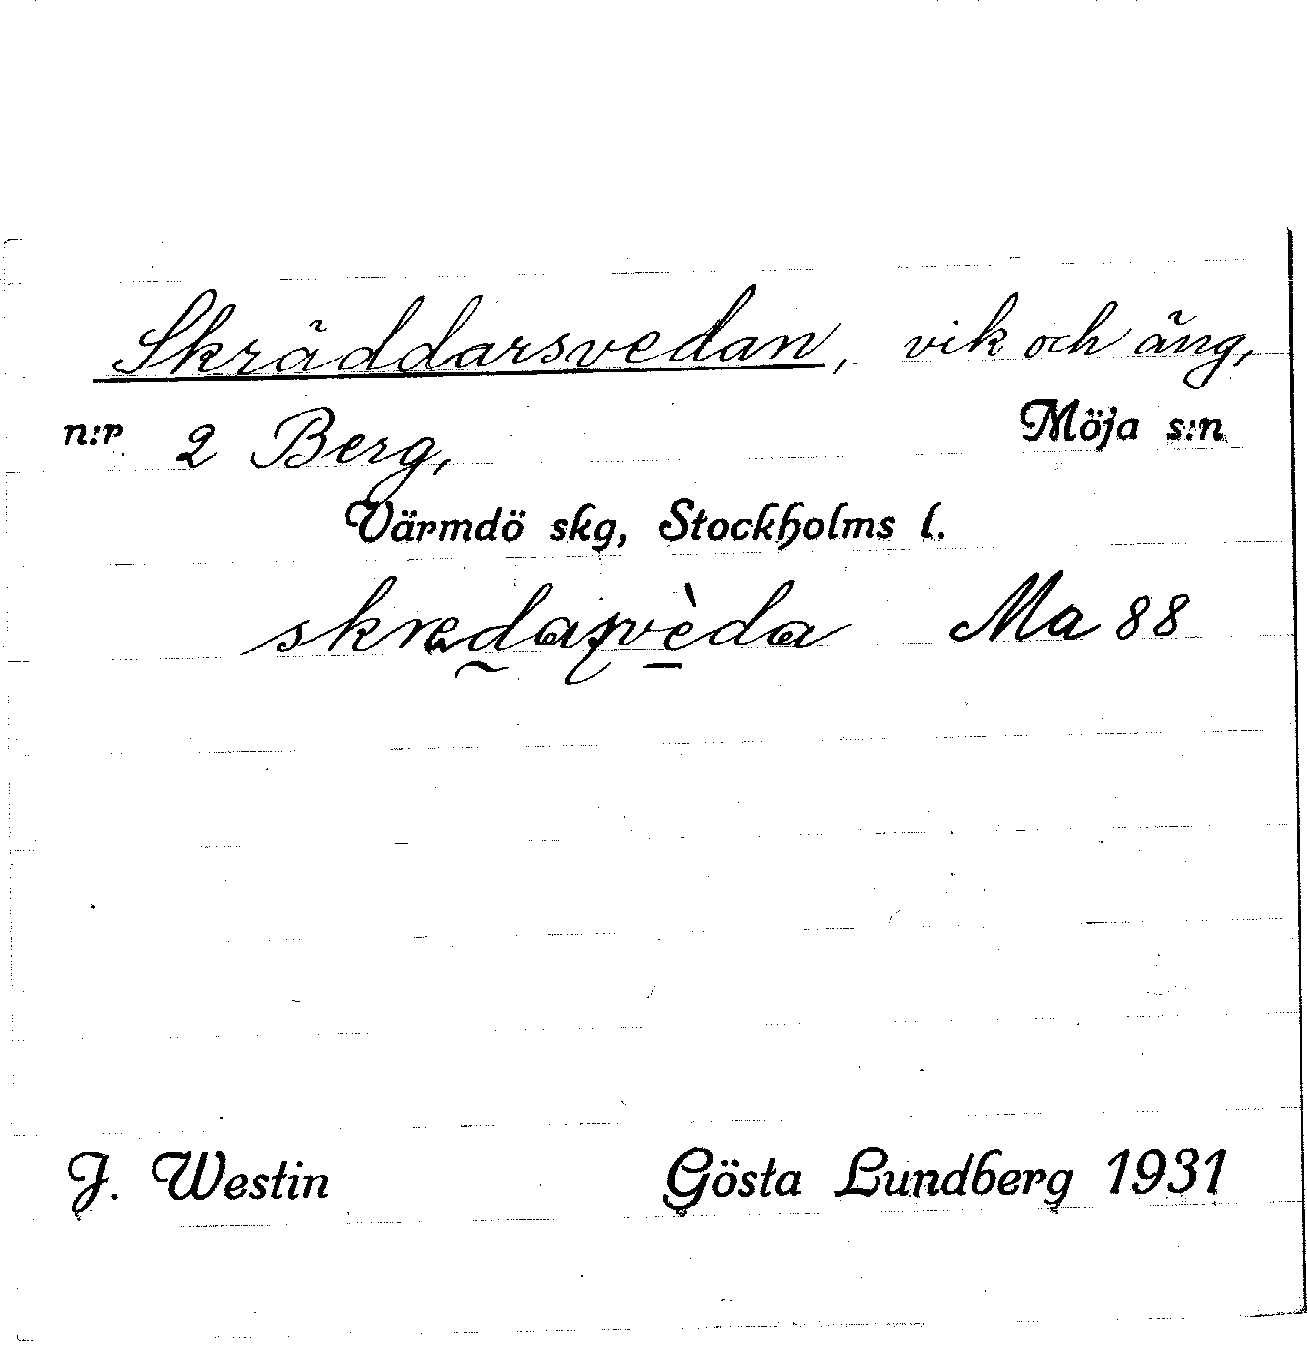 Skräddarsvedan, vik och äng,
n:r 2 Berg, Möja s:n
Värmdö skg, Stockholms l.
skredaʂvèda Ma 88
J. Westin Gösta Lundberg 1931